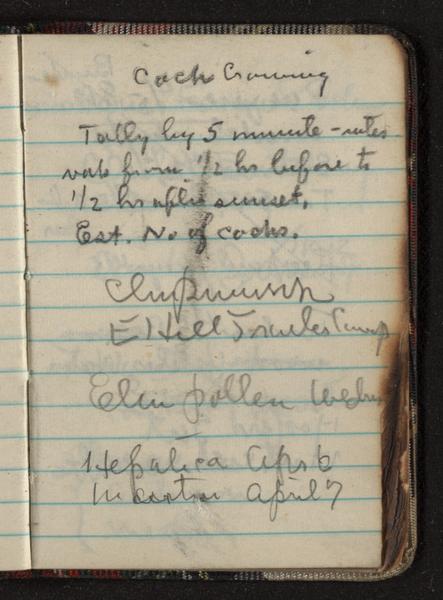 Cock Crowing
Tally by 5 minute -
from 1/2 hr before to
1/2 hr after sunset.
Est. No of cocks.
Chipmunk
E Hill
Elm pollen
Hepatica Apr 6
April 7